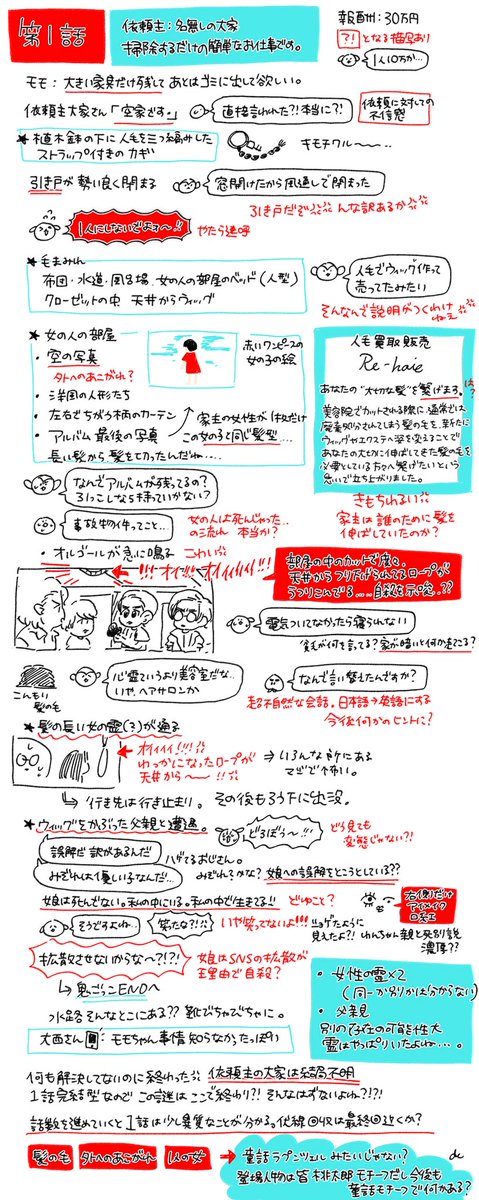 第1話
依頼主：名無しの大家
掃除するだけの簡単なお仕事です。
報酬：30万円
?!となる描写あり
1人10万か…
モモ：大きい家具だけ残して あとはゴミに出して欲しい。
依頼主大家さん「空家です。」
直接言われた?!本当に?!
依頼に対しての
不信感
★植木鉢の下に人毛を三つ編みした
ストラップ付きのカギ
キモチワル〜〜〜…
引き戸が勢い良く閉まる
窓開けたから風通しで閉まった
引き戸だぞ んな訳あるか
1人にしないでよォ〜!!
やたら連呼
★毛まみれ
布団・水道・風呂場・女の人の部屋のベッド(人型)
クローゼットの中 天井からウィッグ
人毛でウィッグ作って
売ってたみたい
そんなんで説明がつくわけ
ねぇ
★女の人の部屋
・空の写真
外へのあこがれ？
赤いワンピースの
女の子の絵
・洋国の人形たち
・左右でちがう柄のカーテン
・アルバム 最後の写真
家主の女性が1枚だけ
この女の子と同じ髪型…
長い髪から髪を切ったしんだね…
人毛買取販売
Re-haie
あなたの"大切な髪"を繋げます。
は？
美容院でカットされる際に、通常では
廃棄処分されてしまう髪の毛を、新たに
ウィッグやエクステへ姿を変えることで
あなたの大切に伸ばしてきた髪の毛を
必要としている方々へ繋げたいという
思いで立ち上がりました。
きもちわるい
家主は誰のために髪を
伸ばしていたのか？
なんでアルバムが残ってるの？
引っこしなら持っていかない？
事故物件ってこと…
女の人は死んじゃった…
の流れ 本当か？
・オルゴールが急に鳴る
こわい
!!! オイ!!! オイィィィ!!!
部屋の中のカットで度々、
天井からつり下げられてるロープが
うつりこんでる…。自殺を示唆.??
電気ついてなかったら寝られない
貧乏が何を言ってる？家が暗いと何か起こる？
こんもり
髪の毛
心霊ていうより美容室だな…
いや、ヘアサロンか
なんで言い替えたんですか？
超不自然な会話。日本語→英語にする
今後何かのヒントに？
★髪の長い女の霊(?)が通る
オイィィィ!!!
わっかになったロープが
天井から〜〜!!
→いろんな所にある
マジで怖い。
↳行き先は行き止まり。 その後もろう下に出没。
★ウィッグをかぶった父親と遭遇。
どろぼう〜!!!
どう見ても
変態じゃない?!
誤解だ 訳があるんだ
ハゲてるおじさん。
みぞれは優しい子なんだ…
みぞれ？かな？ 娘への誤解をとこうとしている??
娘は死んでない。私の中にいる。私の中で生きてる!!
どゆこと？
右(側)だけ
アイメイク
口紅
そうですよね…
笑たな?!
いや笑ってないよ!!!
拡散させないからな〜?!?!
娘はSNSの拡散が
主理由で自殺？
↳鬼ごっこENDへ
水路そんなとこにある?? 靴でちゃぷちゃに。
大西さん：モモちゃん事情知らなかったっぽい
・女性の霊×2
(同一か別かは分からない)
・父親
別の存在の可能性大
霊はやっぱりいたよね…。
何も解決してないのに終わった 依頼主の大家は結局不明
1話完結型なのでこの謎はここで終わり?!そんなはずないよね?!?!
話数を進めていくと1話は少し異質なことが分かる。伏線回収は最終回近くか？
髪の毛 外へのあこがれ 1人の女
→童話ラプンツェルみたいじゃない？
登場人物は皆 桃太郎モチーフだし 今後も
童話モチーフで何かある？